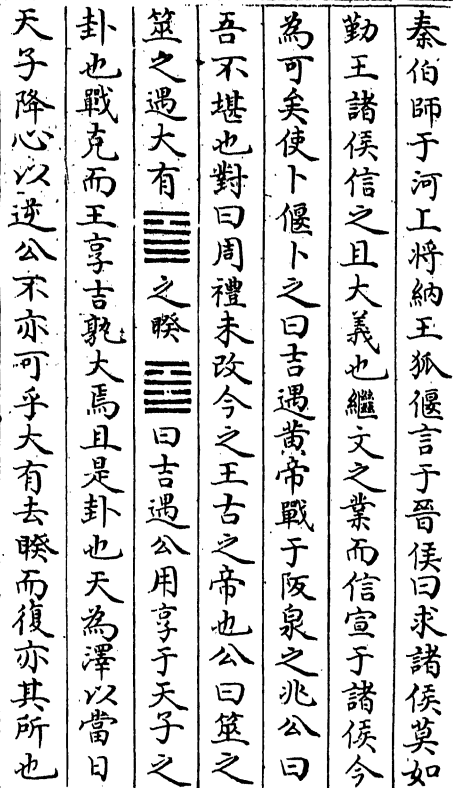 秦伯師于河上將納王狐偃言于晉侯曰求諸侯莫如
勤王諸侯信之且大義也繼文之業而信宣于諸侯今
為可矣使卜偃卜之曰吉遇黄帝戰于阪泉之兆公曰
吾不堪也對曰周禮未改今之王古之帝也公曰筮之
筮之遇大有䷍之睽䷥曰吉遇公用享于天子之
卦也戰克而王享吉孰大焉且是卦也天為澤以當日
天子降心以逆公不亦可乎大有去睽而復亦其所也